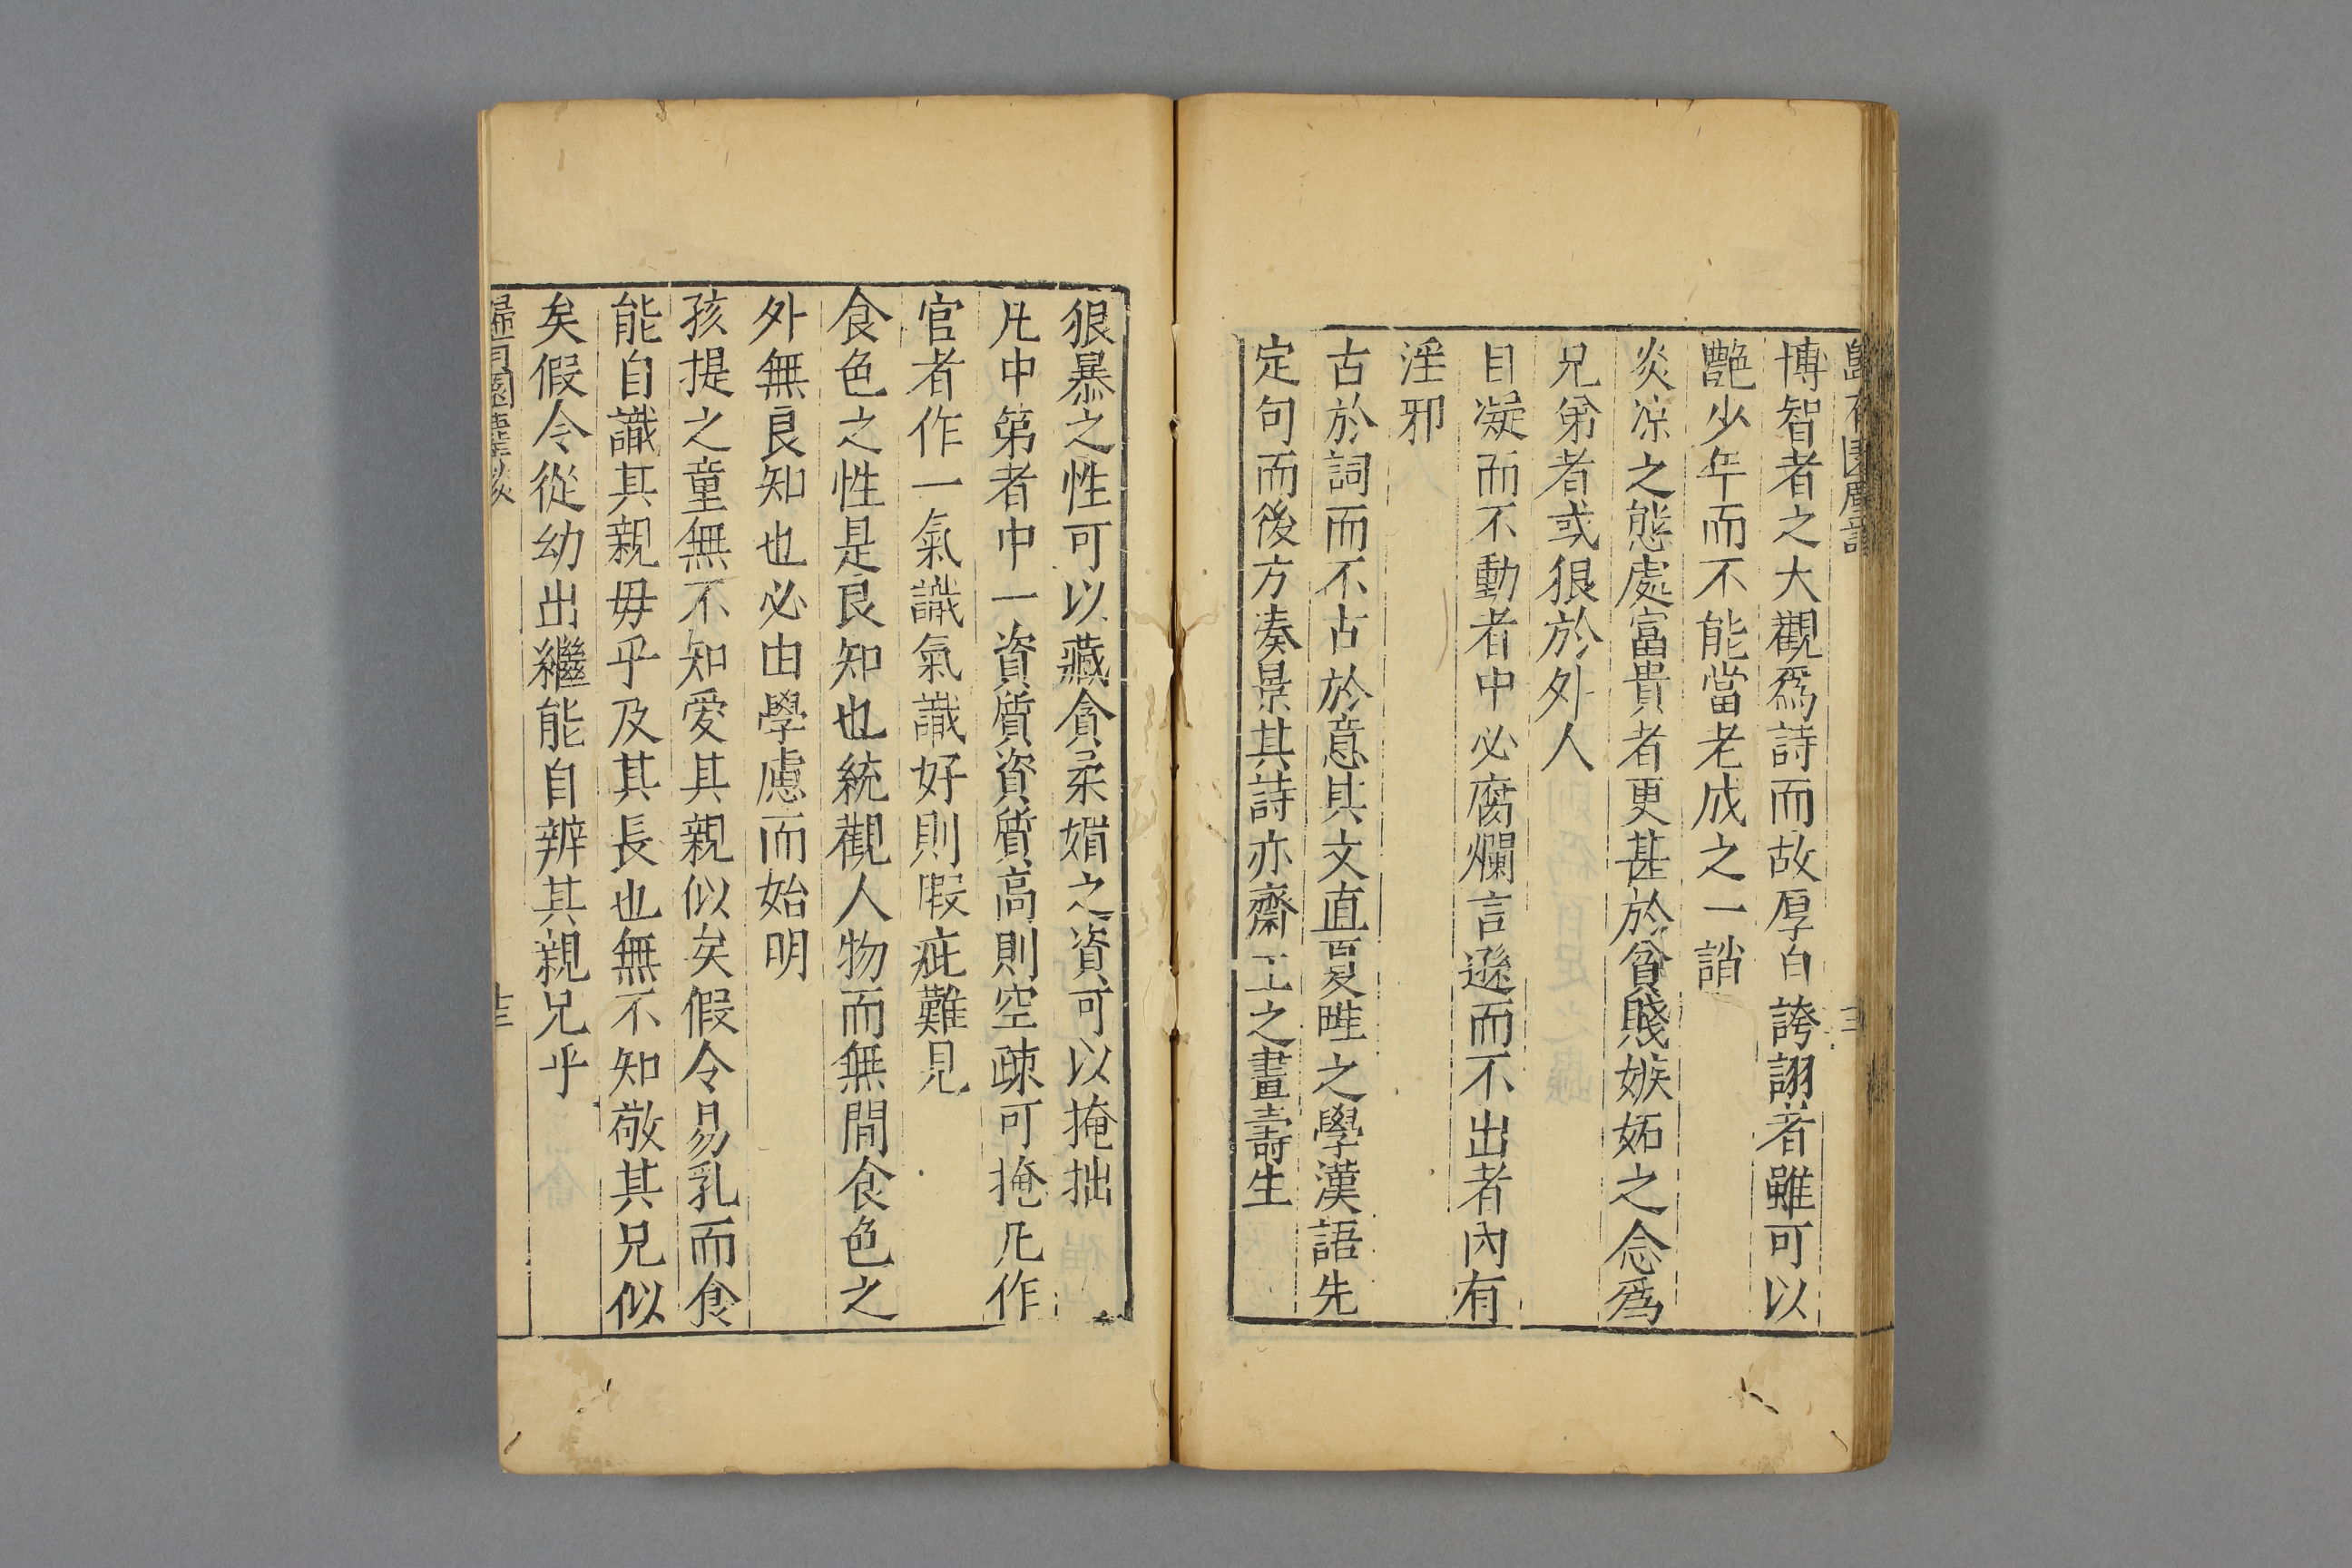 博智者之大觀爲詩而故厚自誇詡者雖可以
艶少年而不能當老成之一誚
炎凉之態處富貴者更甚於貧賤嫉妬之念爲
兄弟者或狠於外人
目凝而不動者中必腐爛言遜而不出者內有
淫邪
古於詞而不古於意其文直夏畦之學漢語先
定句而後方凑景其詩亦齋工之畫壽生
狠暴之性可以藏貪柔媚之資可以掩拙
凡中第者中一資質資質高則空疎可掩凡作
官者作一氣識氣識好則假疵難見
食色之性是良知也統觀人物而無間食色之
外無良知也必由學慮而始明
孩提之童無不知愛其親似矣假令易乳而食
能自識其親毋乎及其長也無不知敬其兄似
矣假令從幼出繼能自辨其親兄乎
歸有園麈談